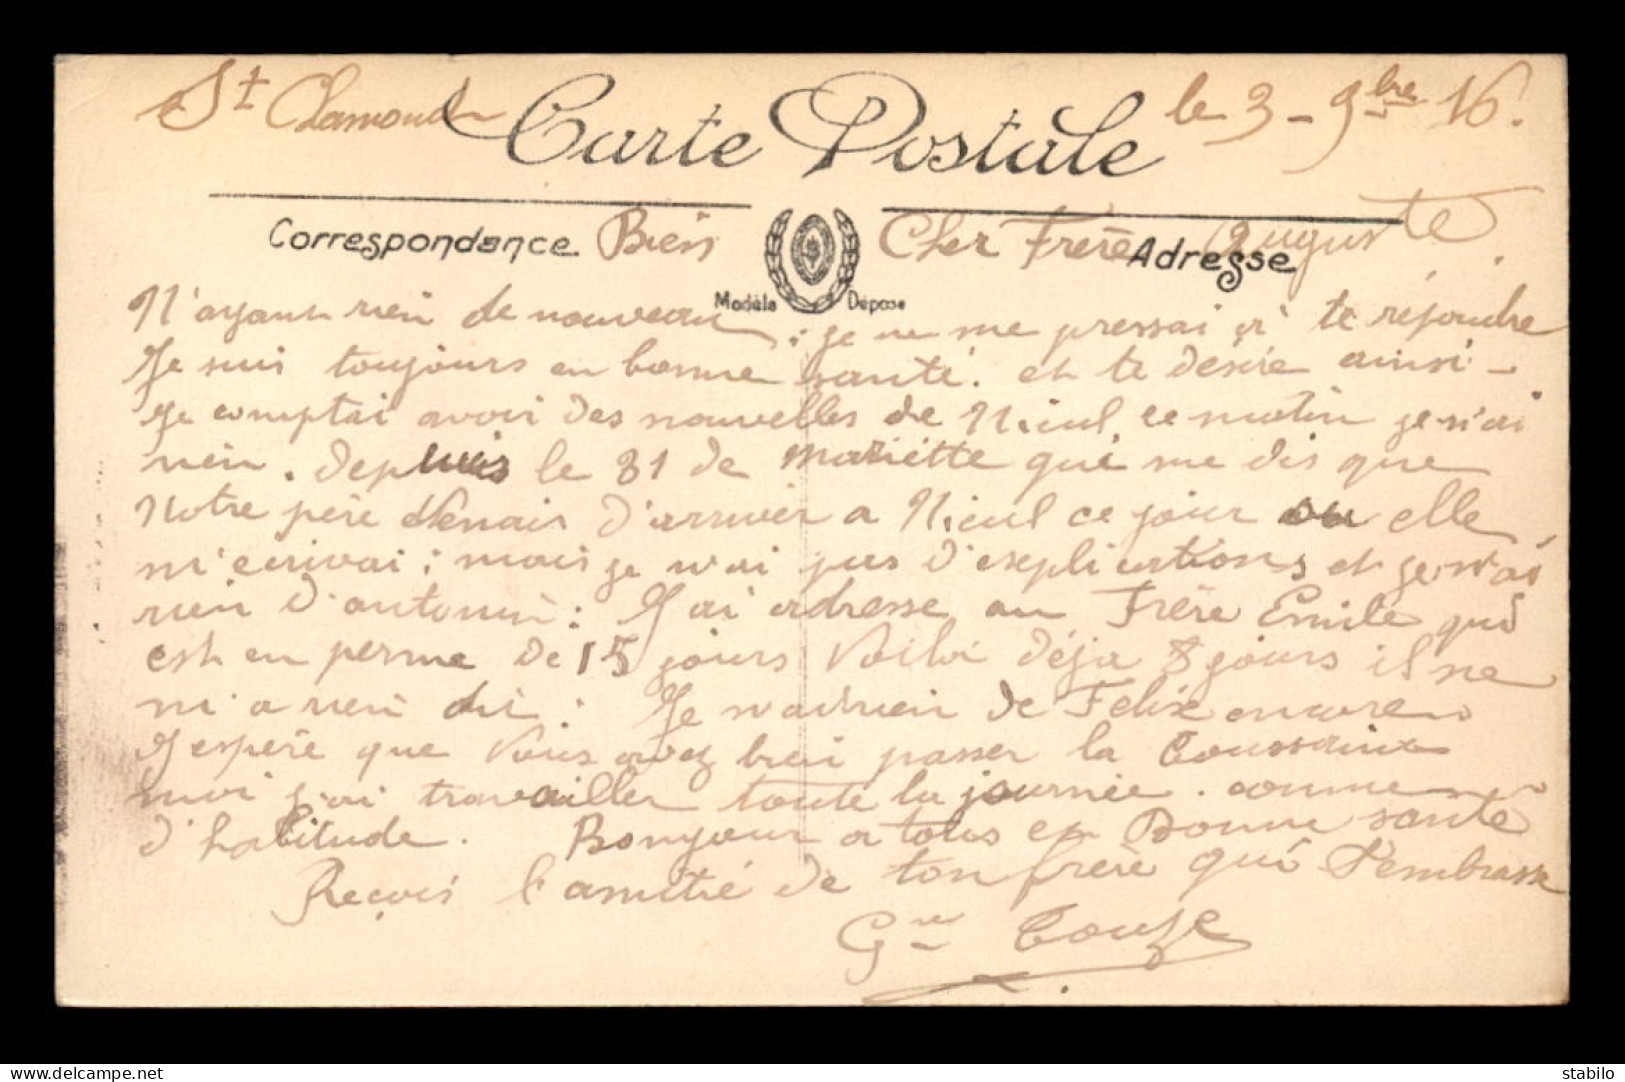 St Chamond le 3 - 9bre 16.
Carte Postale
Correspondance Adresse
Bien Cher Frère Auguste
Modèle Déposé
N'ayant rien de nouveau ; je ne me pressai à te répondre
Je suis toujours en bonne santé. et te désire ainsi -
Je comptai avoir des nouvelles de Nieul, ce matin je n'ai
rien. depuis le 31 de Mariette qui me dis que
Notre père venait d'arriver a Nieul ce jour ou elle
m'écrivai ; mais je n'ai pas d'explications et je n'ai
rien d'antonin : J'ai adresse au Frère Emile qui
est en perme de 15 jours Voilà déja 8 jours il ne
m'a rien dit : Je n'ai rien de Felix encore
J'espère que Vous avez bien passer la Toussaint
moi j'ai travailler toute la journée. comme
d'habitude. Bonjour a tous et Bonne santé
Reçois l'amitié de ton frère qui t'embrasse
Touze
stabilo